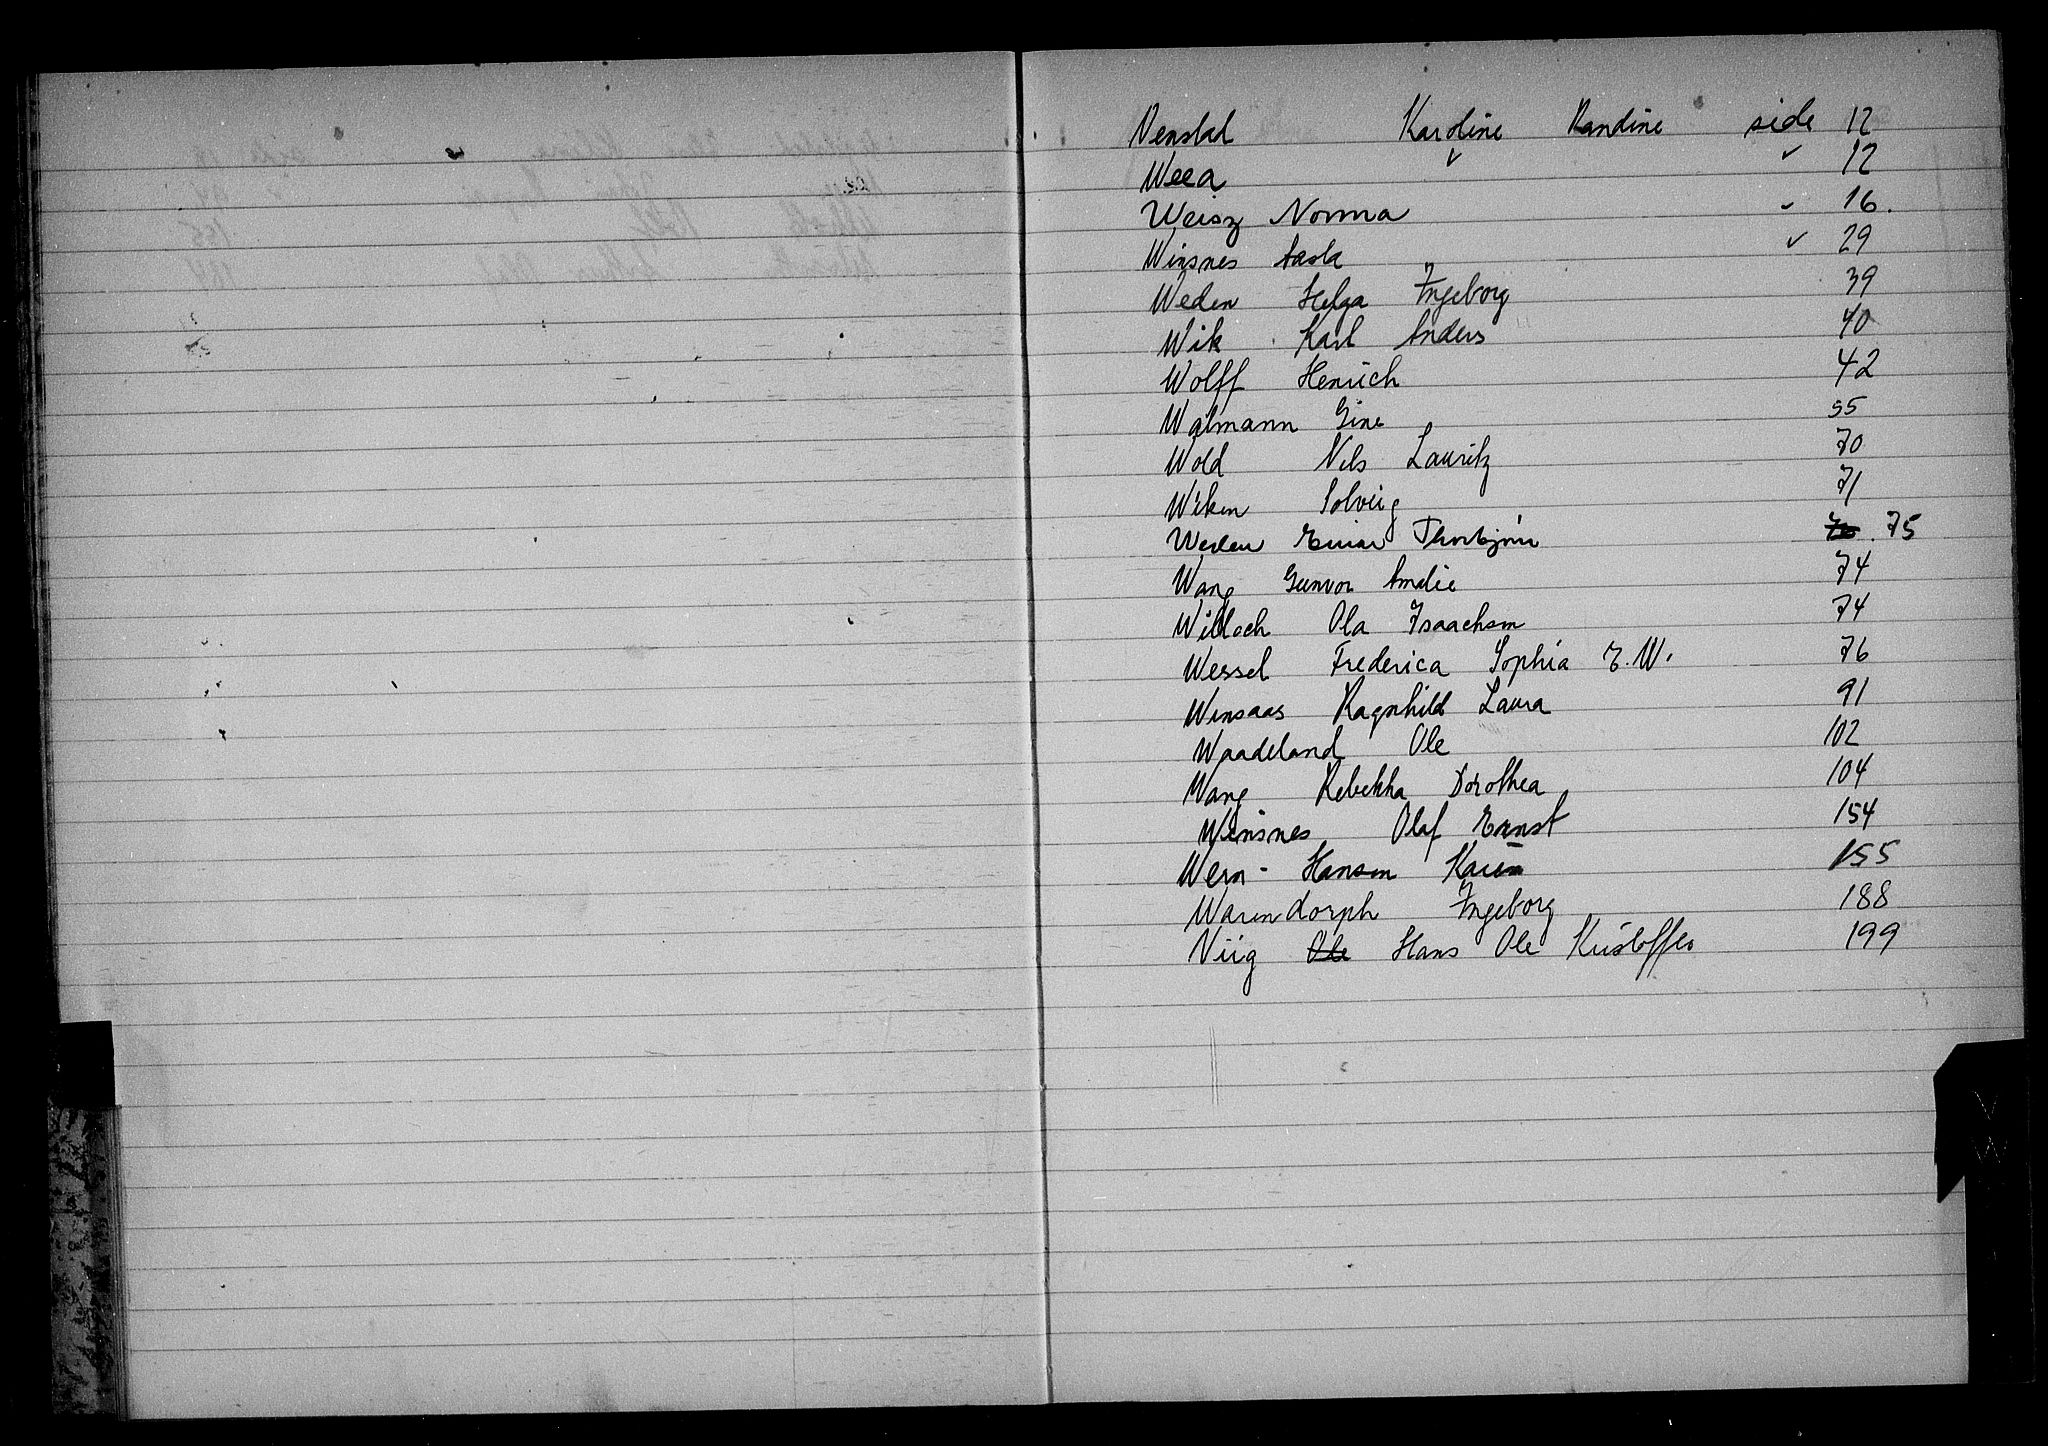 Venstad Karoline Randine side 12
Weea ✓ ✓ 12
Weisz Norma ✓ 16.
Winsnes Aasta ✓ 29
Weden Helga Ingeborg 39
Wik Karl Anders 40
Wolff Henrich 42
Walmann Gine 55
Wold Nils Lauritz 70
Wiken Solveig 71
Weden Einar Thorbjörn 75
Wang Gunvor Amalie 74
Willoch Ola Isaachsen 74
Wessel Frederica Sophia E.W. 76
Winsaas Ragnhild Laura 91
Waadeland Ole 102
Wang Rebekka Dorothea 104
Winsnes Olaf Ernst 154
Wern - Hansen Karen 155
Warendorph Ingeborg 188
Viig Ole Hans Ole Kristoffer 199
V
W